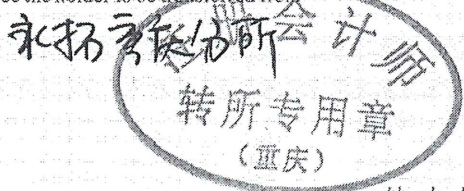 永拓重庆分所
注册会计师
转所专用章
(重庆)